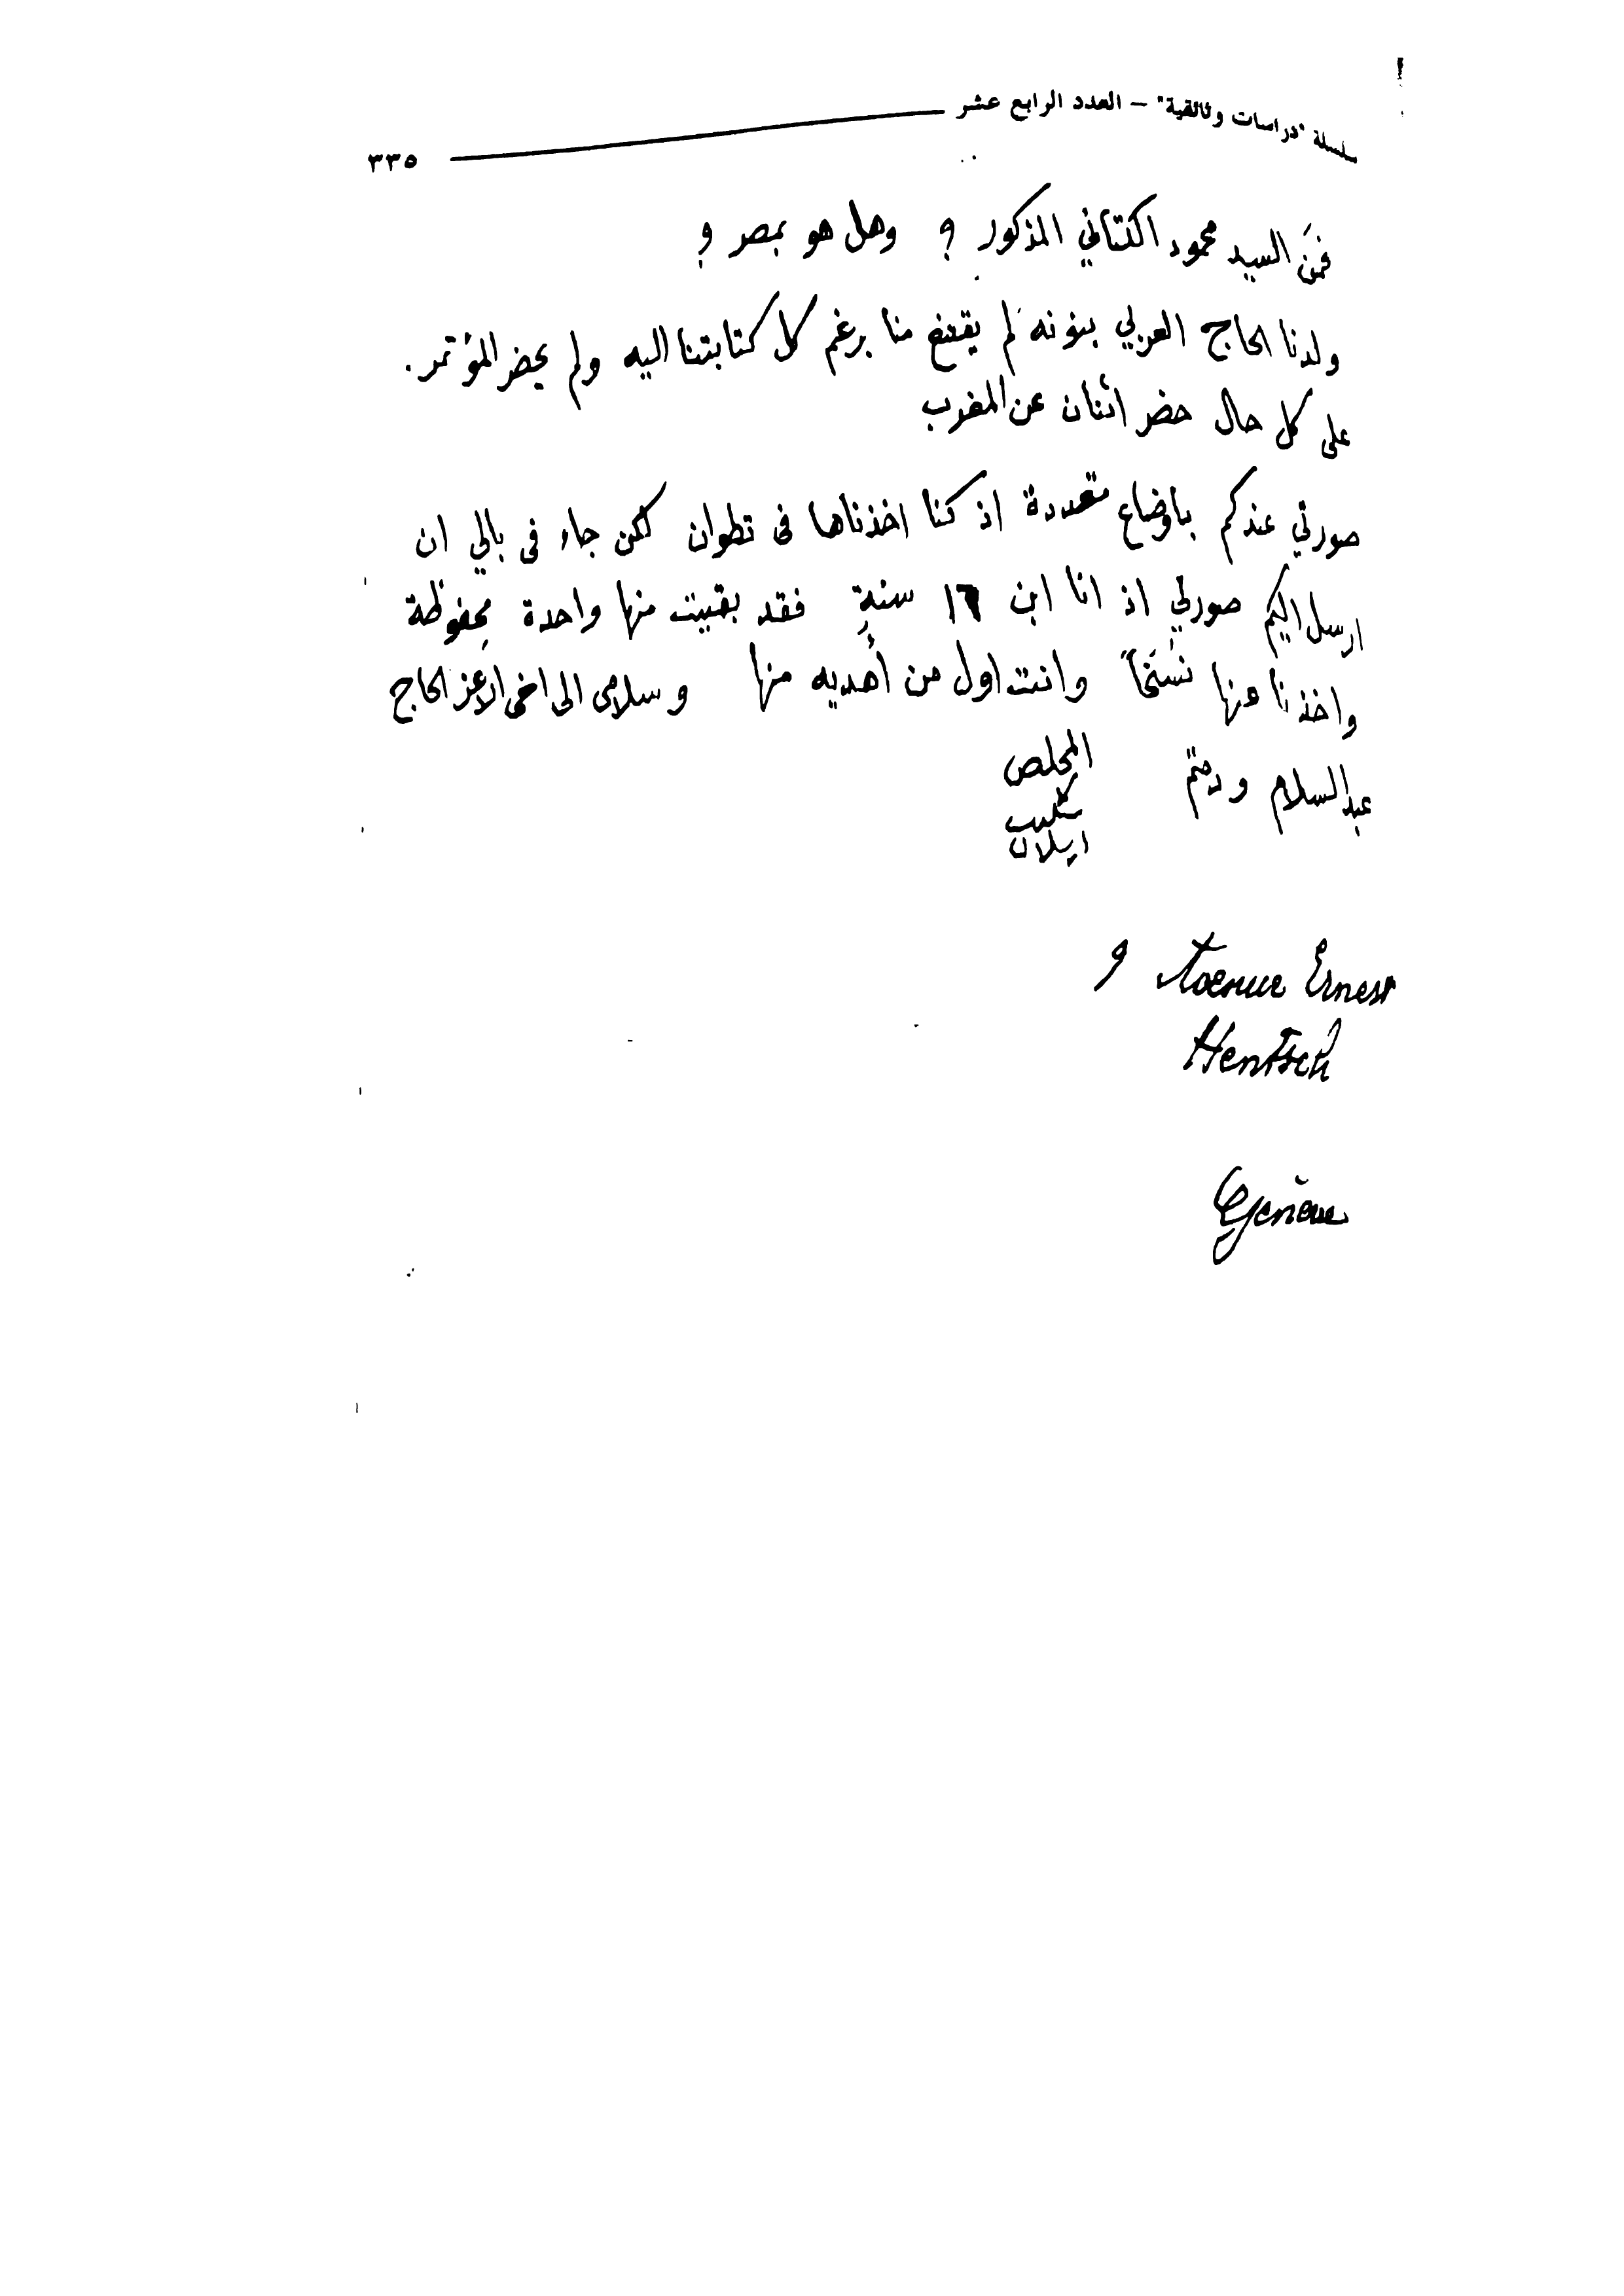 سلسلة "دراسات وثائقية" – العدد الرابع عشر
٣٣٥
فمَن السيد محمود الكتاني المذكور ؟ وهل هو بمصر ؟
ولدنا الحاج العربي بنونه لم يقتنع منا برغم كل كتابتنا اليه ولم يحضر المؤتمر.
على كل حال حضر اثنان عن المغرب
صورتي عندكم باوضاع متعددة اذ كنا اخذناها فى تطوان لكن جاء فى بالي ان
ارسل اليكم صورتي اذ انا ابن ١٦ سنةٍ فقد بقيت منها واحدة محفوظة
واخذنا عنها نُسَخاً وانت اول من أُهديه منها وسلامى الى اخى الاعز الحاج
عبد السلام ودمتم
المخلص
شكيب
ارسلان
9 Avenue Ernest
Hentsch
Genève